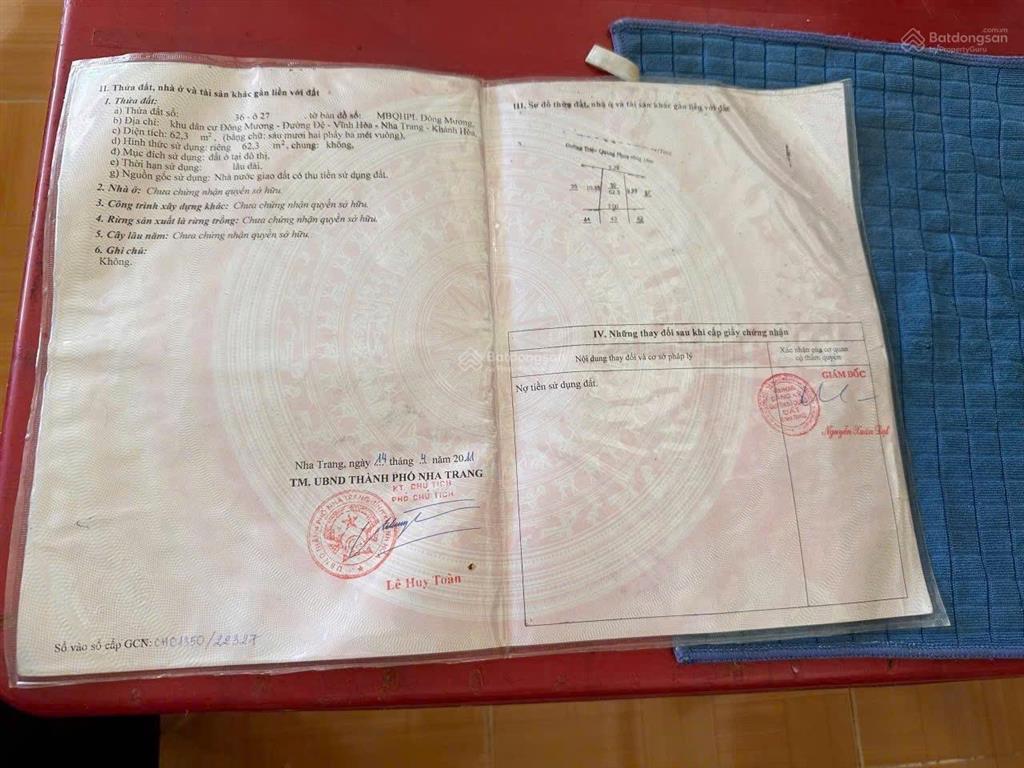 Batdongsan
.com.vn
by PropertyGuru
II. Thửa đất, nhà ở và tài sản khác gắn liền với đất
1. Thửa đất:
a) Thửa đất số: 36 - ô 27 , tờ bản đồ số: MBQHPL Đông Mương,
b) Địa chỉ: khu dân cư Đông Mương - Đường Đệ - Vĩnh Hòa - Nha Trang - Khánh Hòa,
c) Diện tích: 62,3 m², (bằng chữ: sáu mươi hai phẩy ba mét vuông),
d) Hình thức sử dụng: riêng 62,3 m², chung: không,
đ) Mục đích sử dụng: đất ở tại đô thị,
e) Thời hạn sử dụng: lâu dài,
g) Nguồn gốc sử dụng: Nhà nước giao đất có thu tiền sử dụng đất.
2. Nhà ở: Chưa chứng nhận quyền sở hữu.
3. Công trình xây dựng khác: Chưa chứng nhận quyền sở hữu.
4. Rừng sản xuất là rừng trồng: Chưa chứng nhận quyền sở hữu.
5. Cây lâu năm: Chưa chứng nhận quyền sở hữu.
6. Ghi chú:
Không.
Nha Trang, ngày 14 tháng 4 năm 2011
TM. UBND THÀNH PHỐ NHA TRANG
KT. CHỦ TỊCH
PHÓ CHỦ TỊCH
Lê Huy Toàn
Số vào sổ cấp GCN: CH01350/22327
III. Sơ đồ thửa đất, nhà ở và tài sản khác gắn liền với đất
36
62.3
44 43 42
IV. Những thay đổi sau khi cấp giấy chứng nhận
Nội dung thay đổi và cơ sở pháp lý
Xác nhận của cơ quan
có thẩm quyền
Nợ tiền sử dụng đất.
GIÁM ĐỐC
Nguyễn Xuân Đạt
Batdongsan